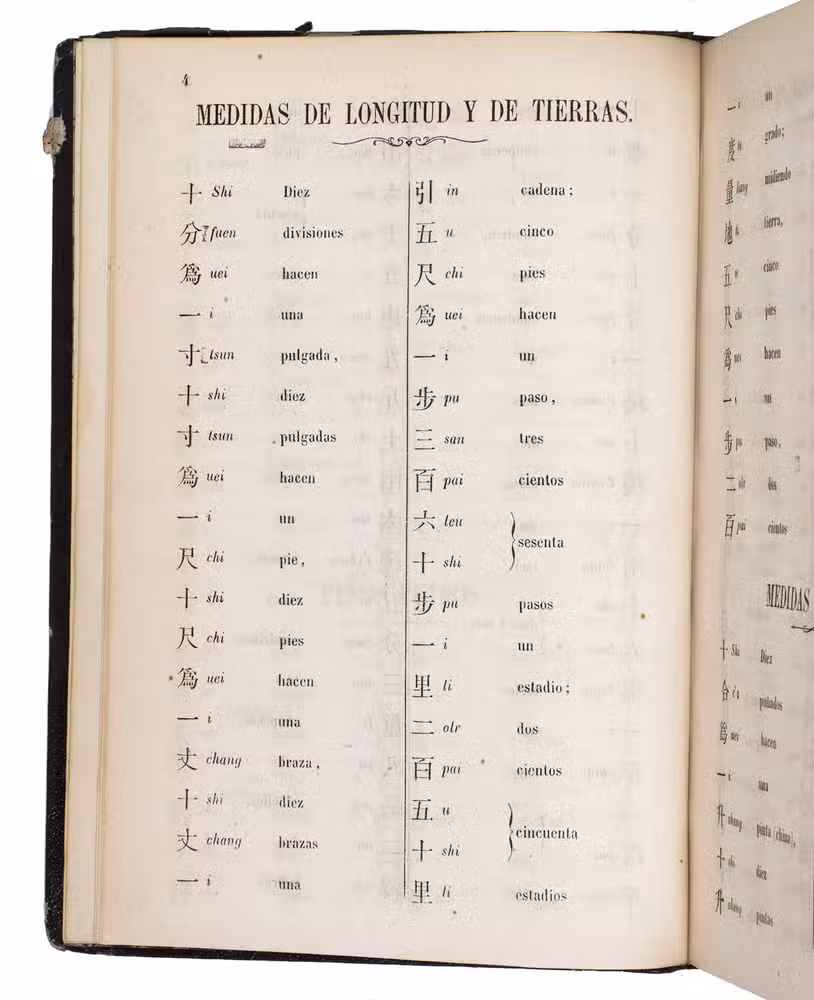 4
MEDIDAS DE LONGITUD Y DE TIERRAS.
十 Shi Diez
分 fuen divisiones
爲 uei hacen
一 i una
寸 tsun pulgada,
十 shi diez
寸 tsun pulgadas
爲 uei hacen
一 i un
尺 chi pie,
十 shi diez
尺 chi pies
爲 uei hacen
一 i una
丈 chang braza,
十 shi diez
丈 chang brazas
一 i una
引 in cadena;
五 u cinco
尺 chi pies
爲 uei hacen
一 i un
步 pu paso,
三 san tres
百 pai cientos
六 leu
sesenta
十 shi
步 pu pasos
一 i un
里 li estadio;
二 olr dos
百 pai cientos
五 u
cincuenta
十 shi
里 li estadios
一 i un
度 grado;
量 liang midiendo
地 tierra,
五 u cinco
尺 chi pies
爲 uei hacen
一 i un
步 pu paso,
二 olr dos
百 pai cientos
MEDIDAS
十 Shi Diez
合 puñados
爲 uei hacen
一 i una
升 shang pinta (china),
十 shi diez
升 shang pintas